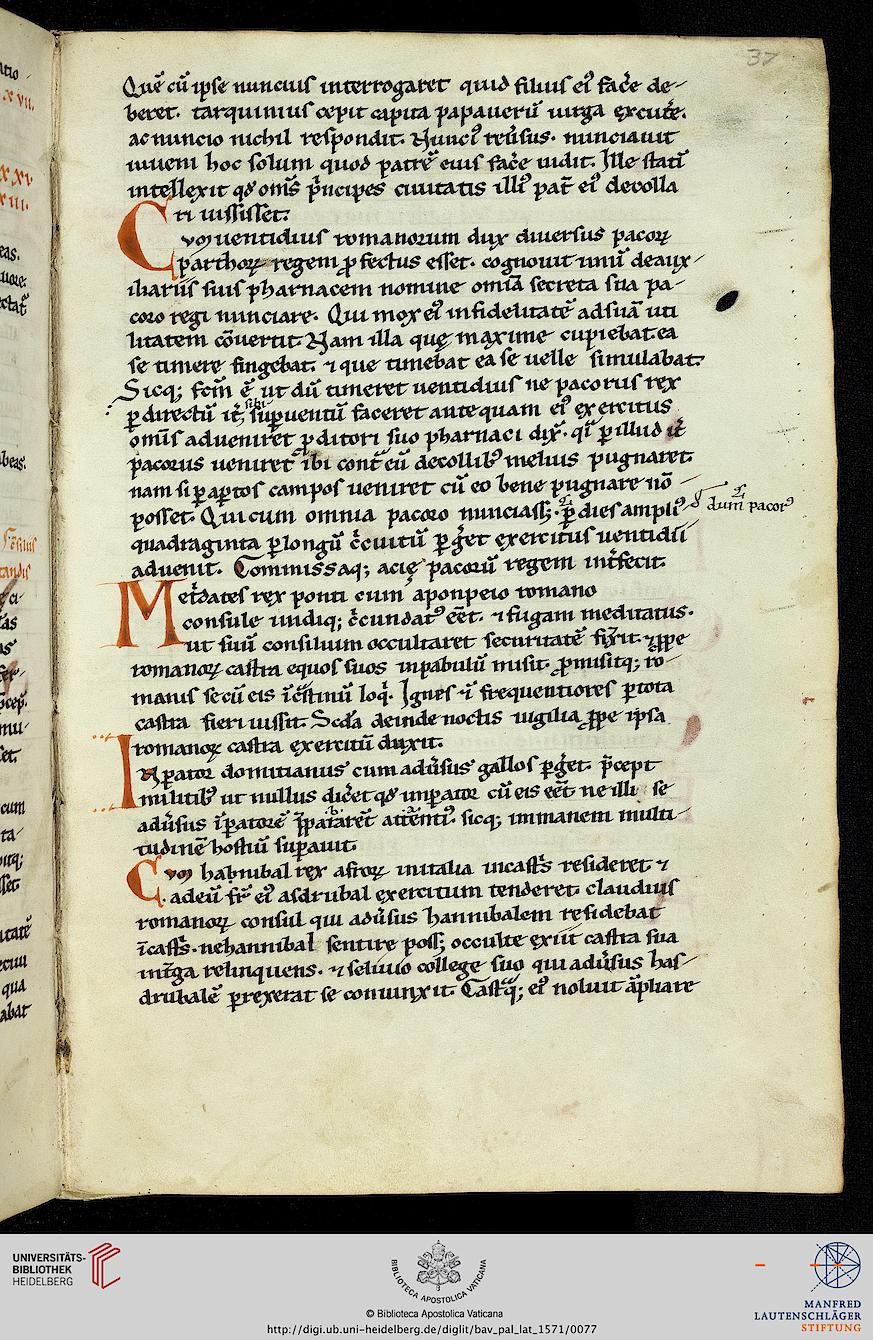 37
Quē cū ipse nuncius interrogaret quid filius eiꝰ fac̄e de-
beret. tarquinius cepit capita papaverū uirga excut̄e.
ac nuncio nichil respondit. Nunciꝰ reūsus. nunciauit
iuueni hoc solum quod patrē eius fac̄e uidit. Ille statī
intellexit qđ om̄s p̄ncipes ciuitatis illiꝰ pat̄ eiꝰ decolla
ri iussisset.
Cum uentidius romanorum dux aduersus pacoꝝ
parthoꝝ regem ꝓfectus esset. cognouit unū deaux-
iliariis suis pharnacem nomine omīa secreta sua pa-
coro regi nunciare. Qui mox eiꝰ infidelitatē adsuā uti
litatem cōuertit. Nam illa quę maxime cupiebat. ea
se timere fingebat. ⁊ que timebat ea se uelle simulabat.
Sicq; fcm̄ ē ut dū timeret uentidius ne pacorus rex
ꝑ directū it̄ sibi suꝑuentū faceret antequam eiꝰ exercitus
om̄is adueniret ꝓditori suo pharnaci dix̄. qꝛ ꝑ illud it̄
pacorus ueniret ibi cont̄ eū decollibꝰ melius pugnaret.
nam si ꝑ aꝑtos campos ueniret cū eo bene pugnare nō
posset. Qui cum omnia pacoro nunciass;. ꝑ dies ampliꝰ
dum pacorꝰ
quadraginta ꝑ longū c̄cuitū ꝑḡet exercitus uentidii
aduenit. Commissaq; acie pacorū regem int̄fecit.
Met̄dates rex ponti cum a ponpeio romano
consule undiq; c̄cundatꝰ eēt. ⁊ fugam meditatus.
ut suū consilium occultaret securitatē fixit. ⁊ ꝓpe
romanoꝝ castra equos suos inpabulū misit. ꝓmisitq; ro-
manis secū eis īc̄stinū loq̄. Ignes ⁊ī frequentiores ꝑ tota
castra fieri iussit. Scđa deinde noctis uigilia ꝓpe ipsa
romanoꝝ castra exercitū duxit.
Inꝑator domitianus cum adūsus gallos ꝑḡet. p̄cepit
militibꝰ ut nullus dic̄et qđ inꝑator cū eis eēt ne illi se
adūsus īꝑatorē p̄pararēt attentiꝰ. sicq; inmanem multi-
tudinē hostiū suꝑauit.
Cum hannibal rex afroꝝ initalia incast̄s resideret ⁊
adeū fr̄ eiꝰ asdrubal exercitum tenderet. claudius
romanoꝝ consul qui adūsus hannibalem residebat
īcast̄s. nehannibal sentire poss; occulte exiit castra sua
int̄ga relinquens. ⁊ seliuio college suo qui adūsus has-
drubalē ꝑrexerat se coniunxit. Castq̄; eiꝰ noluit āpliare
UNIVERSITÄTS-
BIBLIOTHEK
HEIDELBERG
BIBLIOTECA APOSTOLICA VATICANA
© Biblioteca Apostolica Vaticana
http://digi.ub.uni-heidelberg.de/diglit/bav_pal_lat_1571/0077
MANFRED
LAUTENSCHLÄGER
STIFTUNG